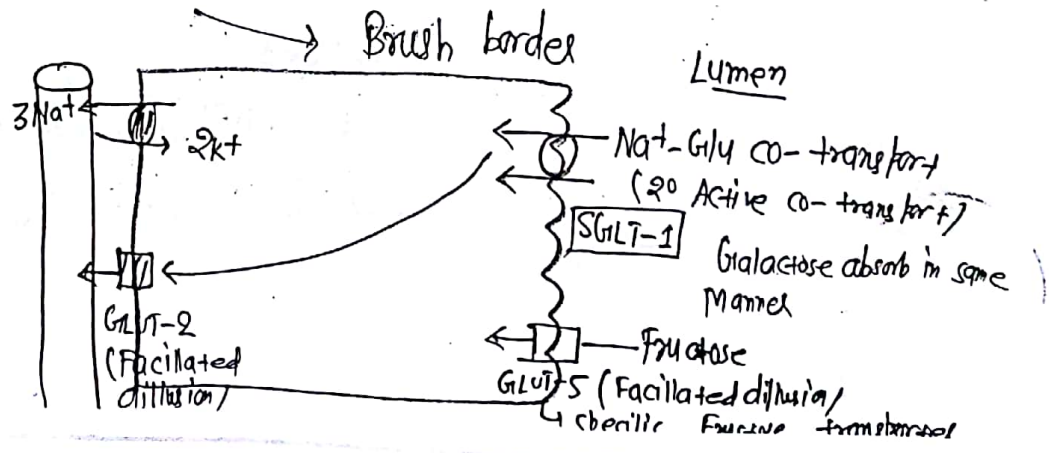 Brush border
Lumen
3Nat
2k+
Nat-Glu co-transport
(2° Active co-transport)
SGLT-1
Galactose absorb in same
Manner
GLUT-2
(Facillated
diffusion)
Fructose
GLUT-5 (Facillated diffusion)
Fructose